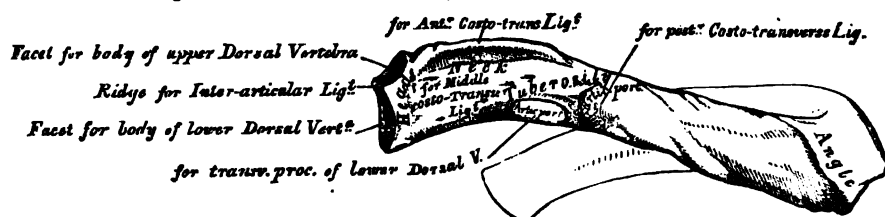 for Antr. Costo-trans Ligt.
for postr. Costo-transverse Lig.
Facet for body of upper Dorsal Vertebra
Ridge for Inter-articular Ligt.
Facet for body of lower Dorsal Vertª.
for transv. proc. of lower Dorsal V.
Head
Neck
for Middle
Costo-Transv.
Ligt.
Tuberosity
Artic. part
part
Angle